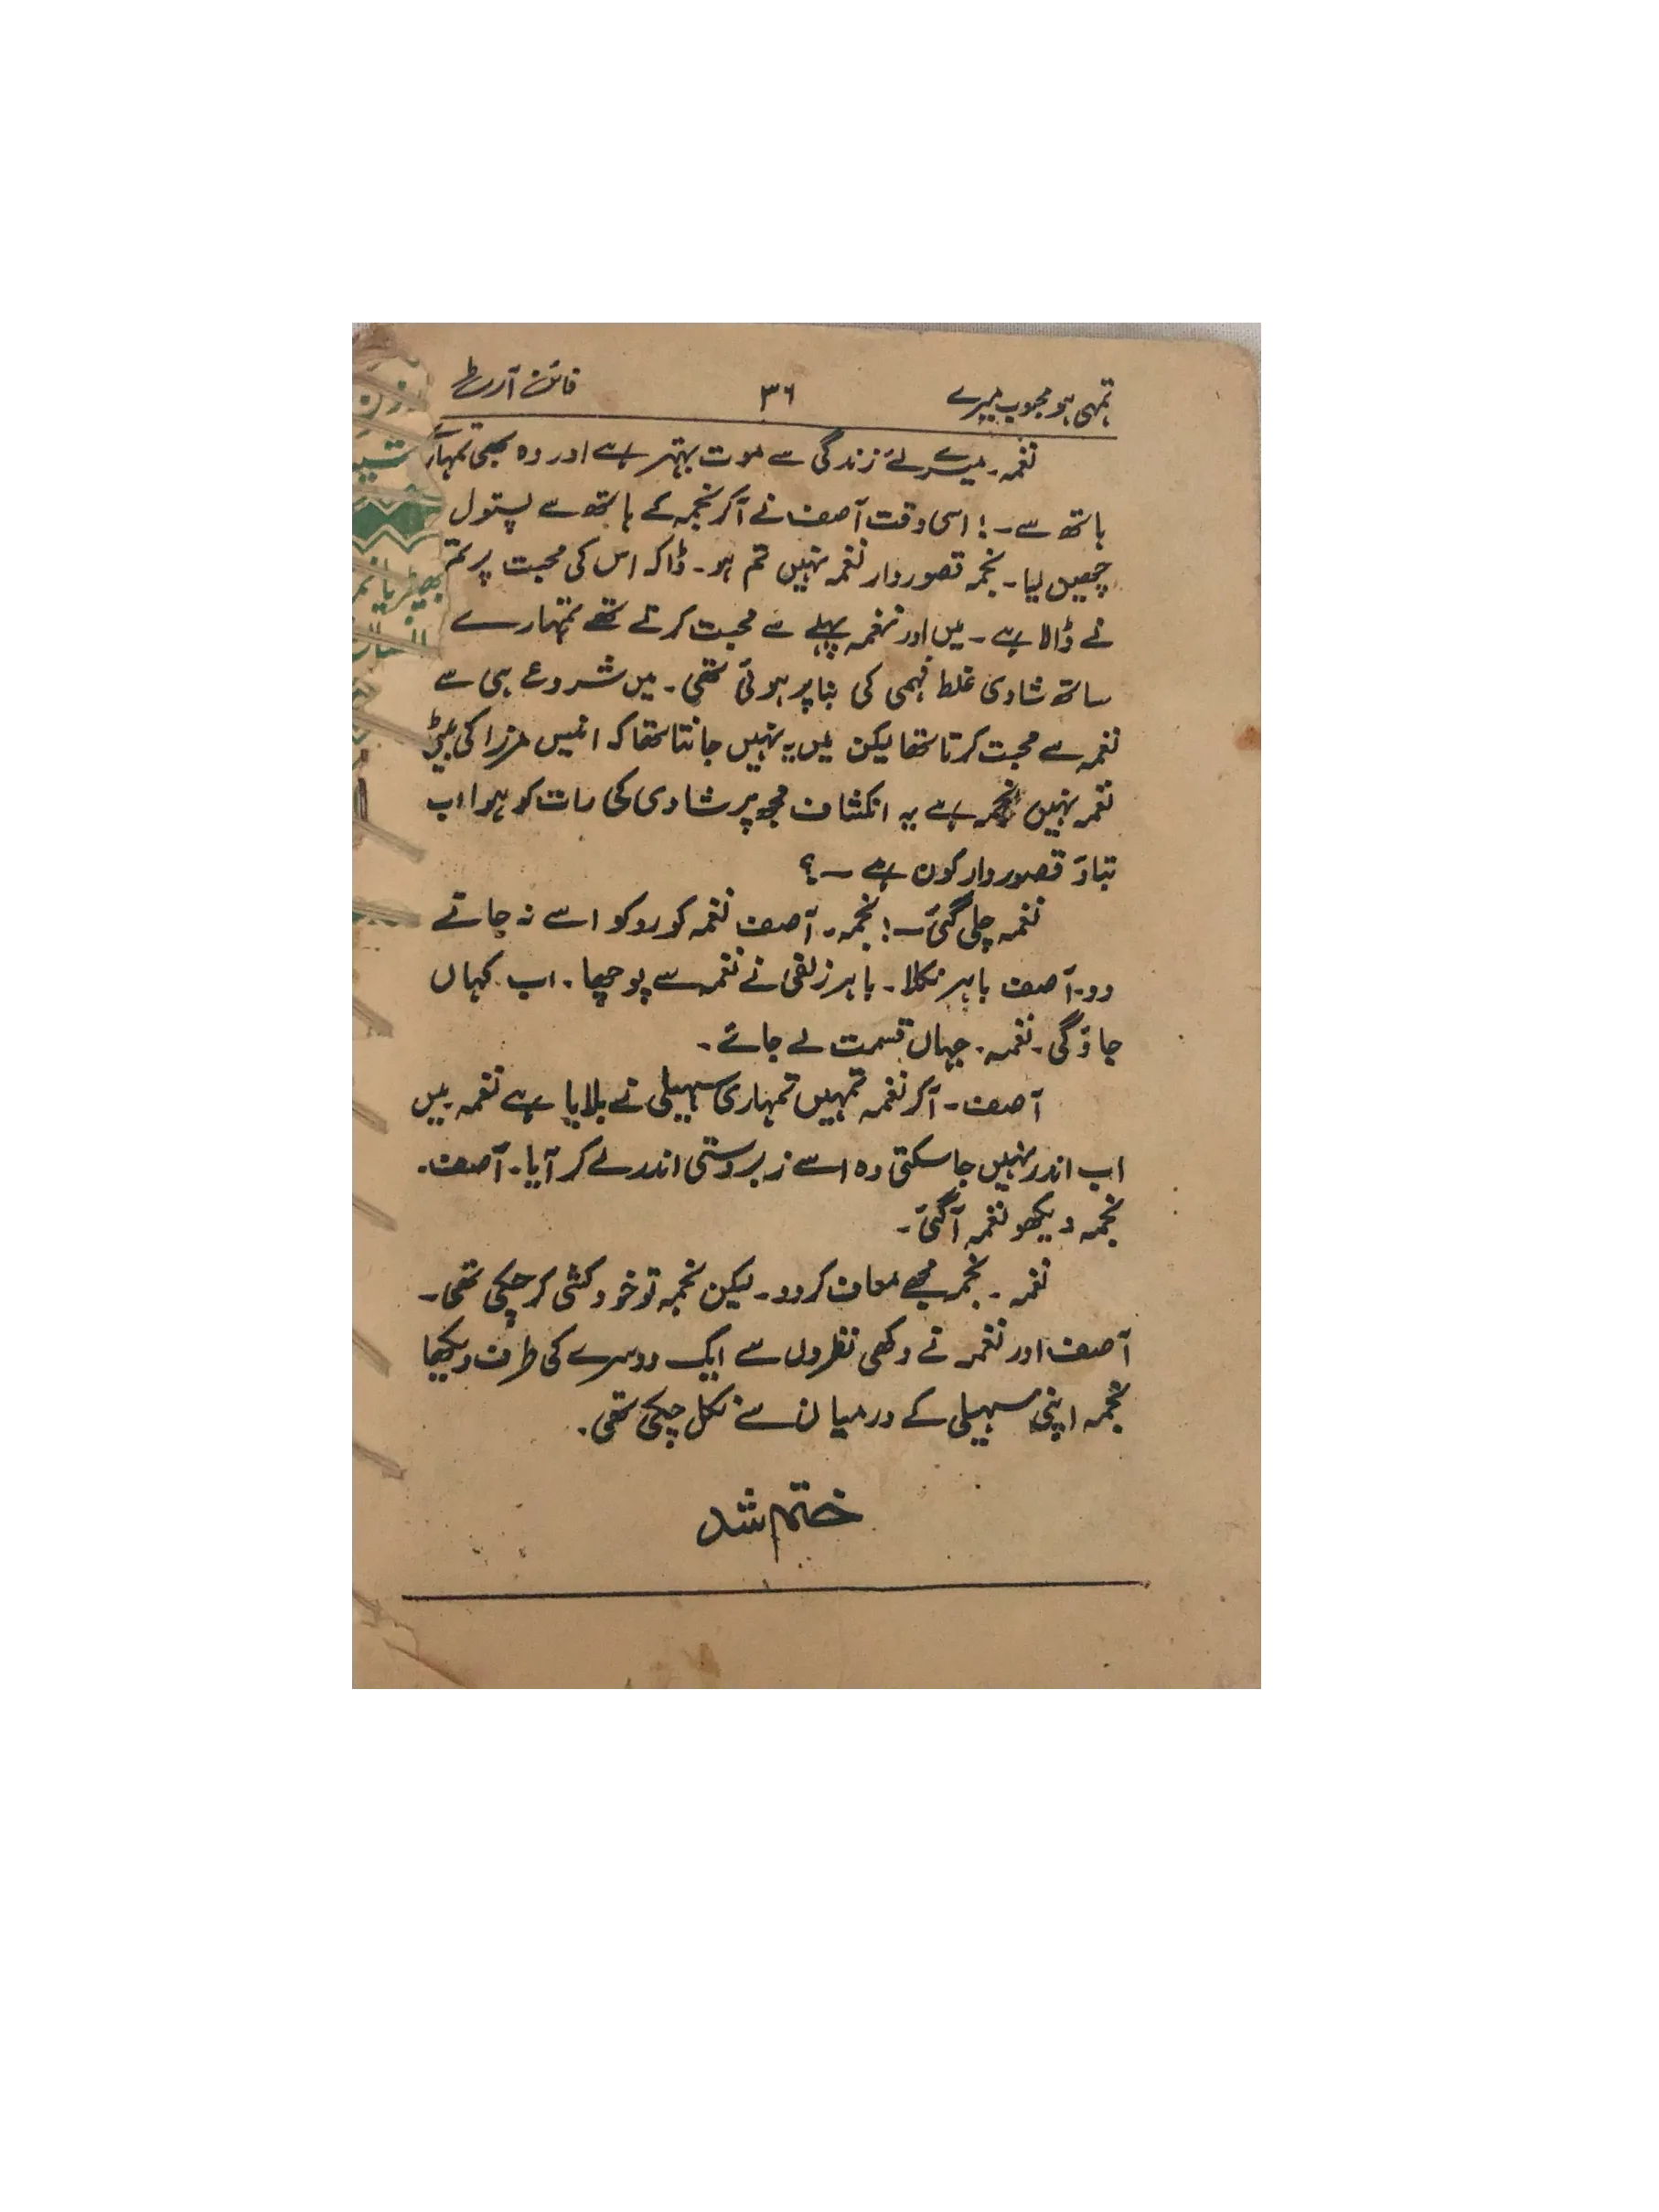 تمہی ہو محبوب میرے ۳۶ فائن آرٹ
نغمہ۔ میرے لئے زندگی سے موت بہتر ہے اور وہ بھی تمہارے
ہاتھ سے ۔! اسی وقت آصف نے آکر نجمہ کے ہاتھ سے پستول
چھین لیا۔ نجمہ قصوروار نغمہ نہیں تم ہو۔ ڈاکہ اس کی محبت پر تم
نے ڈالا ہے۔ میں اور نغمہ پہلے سے محبت کرتے تھے تمہارے
ساتھ شادی غلط فہمی کی بنا پر ہوئی تھی۔ میں شروع ہی سے
نغمہ سے محبت کرتا تھا لیکن میں یہ نہیں جانتا تھا کہ انیس مرزا کی بیٹی
نغمہ نہیں نجمہ ہے یہ انکشاف مجھ پر شادی کی رات کو ہوا اب
بتاؤ قصوروار کون ہے ۔؟
نغمہ چلی گئی ۔! نجمہ۔ آصف نغمہ کو روکو اسے نہ جانے
دو۔ آصف باہر نکلا۔ باہر زلفی نے نغمہ سے پوچھا۔ اب کہاں
جاؤ گی۔ نغمہ۔ جہاں قسمت لے جائے۔
آصف۔ آکر نغمہ تمہیں تمہاری سہیلی نے بلایا ہے نغمہ۔ میں
اب اندر نہیں جا سکتی وہ اسے زبردستی اندر لے کر آیا۔ آصف۔
نجمہ دیکھو نغمہ آگئی۔
نغمہ۔ نجمہ مجھے معاف کردو۔ لیکن نجمہ تو خودکشی کر چکی تھی۔
آصف اور نغمہ نے دکھی نظروں سے ایک دوسرے کی طرف دیکھا
نجمہ اپنی سہیلی کے درمیان سے نکل چکی تھی۔
ختم شد